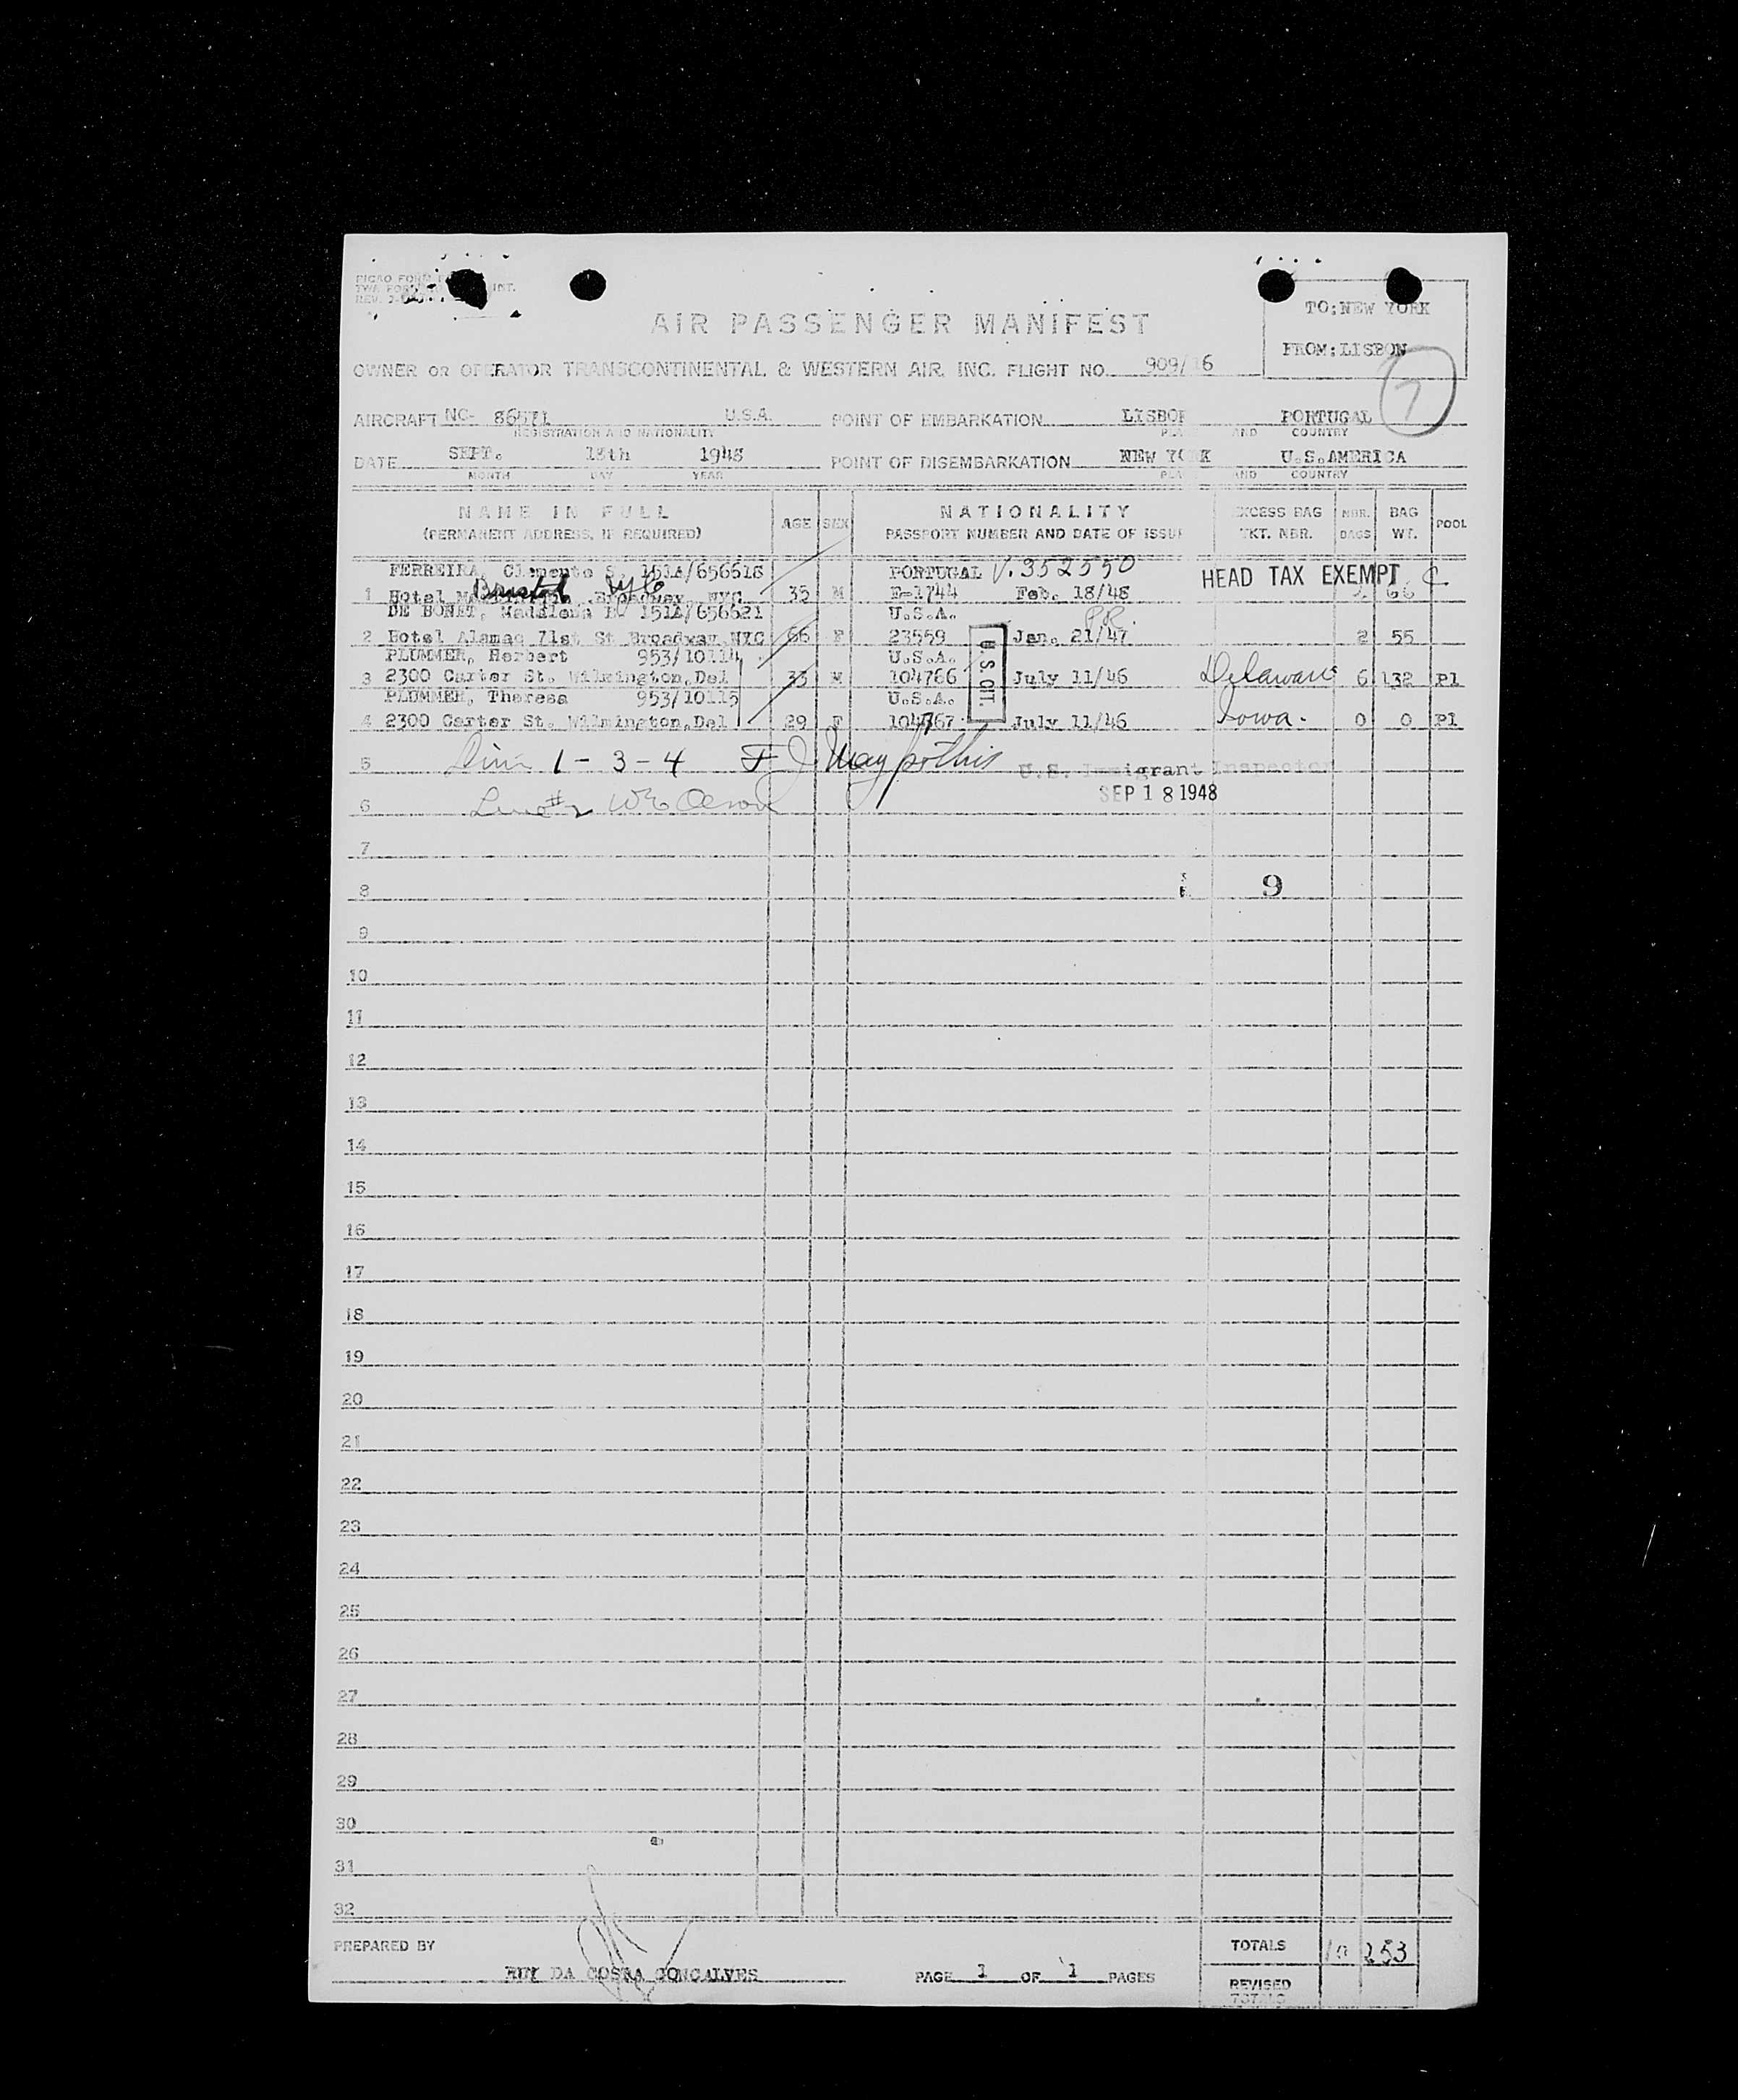 TO: NEW YORK
FROM: LISBON
7
AIR PASSENGER MANIFEST
OWNER OR OPERATOR TRANSCONTINENTAL & WESTERN AIR, INC. FLIGHT NO. 909/16
AIRCRAFT NC- 86511 U.S.A. POINT OF EMBARKATION LISBON PORTUGAL
REGISTRATION AND NATIONALITY PLACE AND COUNTRY
DATE SEPT. 18th 1948 POINT OF DISEMBARKATION NEW YORK U.S.AMERICA
MONTH DAY YEAR PLACE AND COUNTRY
NAME IN FULL AGE SEX NATIONALITY EXCESS BAG NBR. BAG POOL
(PERMANENT ADDRESS, IF REQUIRED) PASSPORT NUMBER AND DATE OF ISSUE TKT. NBR. BAGS WT.
FERREIRA, Clemente S. 151A/656618 PORTUGAL V. 352550 HEAD TAX EXEMPT C
1 Hotel Bristol NYC Broadway, NYC 35 M E-1744 Feb. 18/48 2 66
DE BONET, Madalena 151A/656621 U.S.A. P.R.
2 Hotel Alamac 71st St Broadway NYC 66 F 23559 Jan. 21/47 2 55
PLUMMER, Herbert 953/10114 U.S.A. U.S. CIT.
3 2300 Carter St. Wilmington, Del 33 M 104766 July 11/46 Delaware 6 132 Pl
PLUMMER, Theresa 953/10115 U.S.A.
4 2300 Carter St. Wilmington, Del 29 F 104767 July 11/46 Iowa. 0 0 Pl
5 1 - 3 - 4 U.S. Immigrant Inspector
6 SEP 18 1948
7
8 9
9
10
11
12
13
14
15
16
17
18
19
20
21
22
23
24
25
26
27
28
29
30
31
32
PREPARED BY TOTALS 10 253
RUY DA COSTA GONCALVES PAGE 1 OF 1 PAGES
REVISED
TOTALS